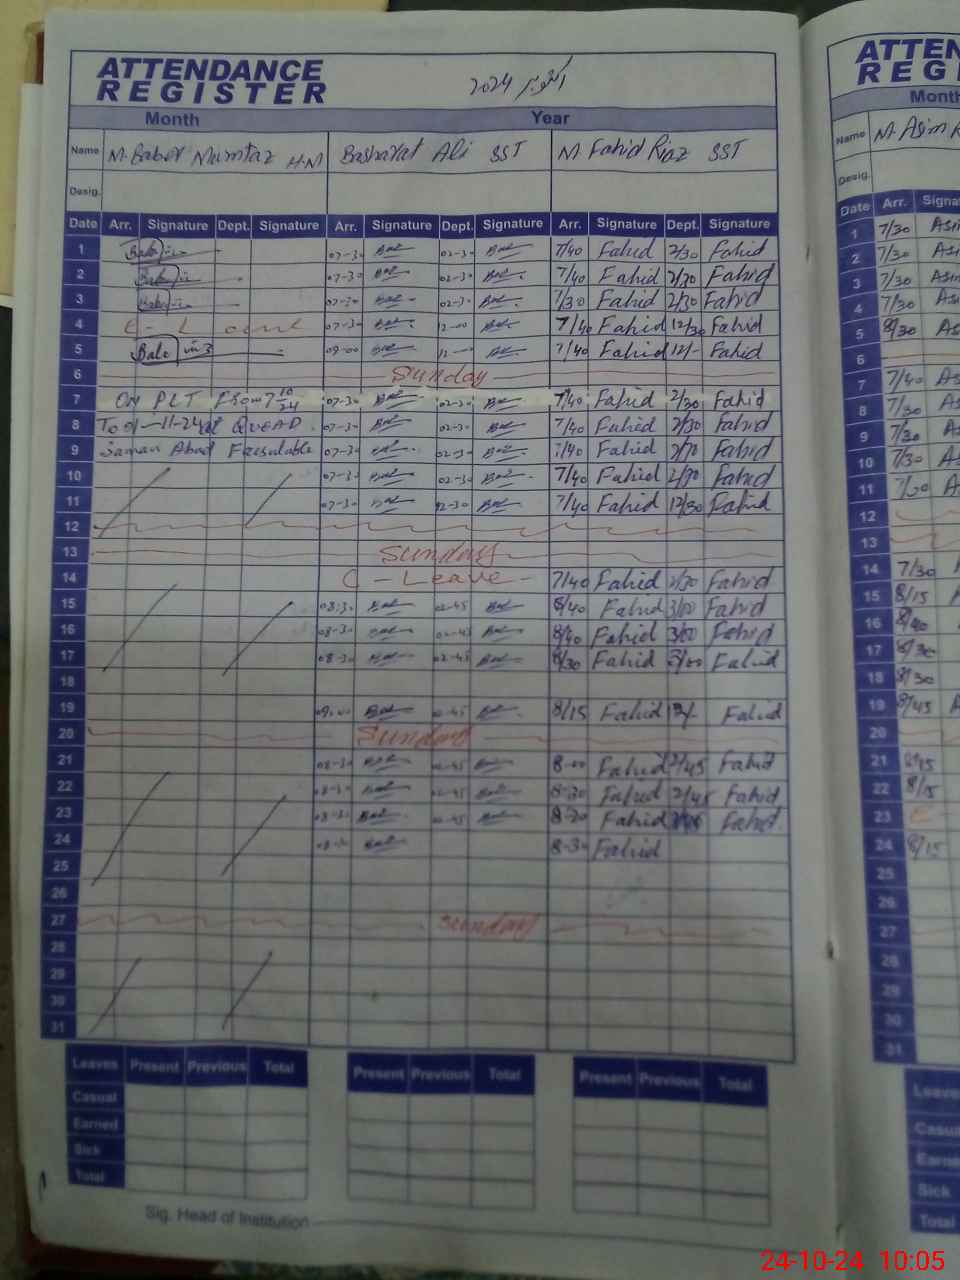 ATTENDANCE
REGISTER
اکتوبر 2024
Month Year
Name M. Baber Mumtaz H.M Basharat Ali SST M. Fahid Riaz SST
Desig.
Date Arr. Signature Dept. Signature Arr. Signature Dept. Signature Arr. Signature Dept. Signature
1 07-30 02-30 7/40 Fahid 2/30 Fahid
2 07-30 02-30 7/40 Fahid 2/30 Fahid
3 07-30 02-30 7/30 Fahid 2/30 Fahid
4 07-30 12-00 7/40 Fahid 12/30 Fahid
5 09-00 12- 7/40 Fahid 12/- Fahid
6 Sunday
7 ON PLT From 7 10/24 07-30 02-30 7/40 Fahid 2/30 Fahid
8 To 01-11-24 at QUEAD 07-30 02-30 7/40 Fahid 2/30 Fahid
9 07-30 02-30 7/40 Fahid 2/30 Fahid
10 07-30 02-30 7/40 Fahid 2/30 Fahid
11 07-30 02-30 7/40 Fahid 12/30 Fahid
12
13 Sunday
14 C-Leave- 7/40 Fahid 2/30 Fahid
15 08-30 02-45 8/40 Fahid 3/00 Fahid
16 08-30 02-45 8/40 Fahid 3/00 Fahid
17 08-30 02-45 8/30 Fahid 3/00 Fahid
18
19 09-00 02-45 8/15 Fahid Fahid
20 Sunday
21 08-30 02-45 8-00 Fahid 2/45 Fahid
22 08-30 02-45 8-30 Fahid 2/45 Fahid
23 08-30 02-45 8-30 Fahid Fahid
24 08-30 8-30 Fahid
25
26
27 Sunday
28
29
30
31
Leaves Present Previous Total Present Previous Total Present Previous Total
Casual
Earned
Sick
Total
Sig. Head of Institution
ATTEN
REGI
Month
Name M. Asim R
Desig.
Date Arr. Signa
1 7/30 Asi
2 7/30 As
3 7/30 As
4 7/30 As
5 8/30 As
6
7 7/40 As
8 7/30 As
9 7/30 As
10 7/30 As
11 7/30 As
12
13
14 7/30
15 8/15
16 8/40
17 8/30
18 8/30
19 8/45
20
21 8/15
22 8/15
23
24 8/15
25
26
27
28
29
30
31
Leave
Casu
Earne
Sick
Total
24-10-24 10:05